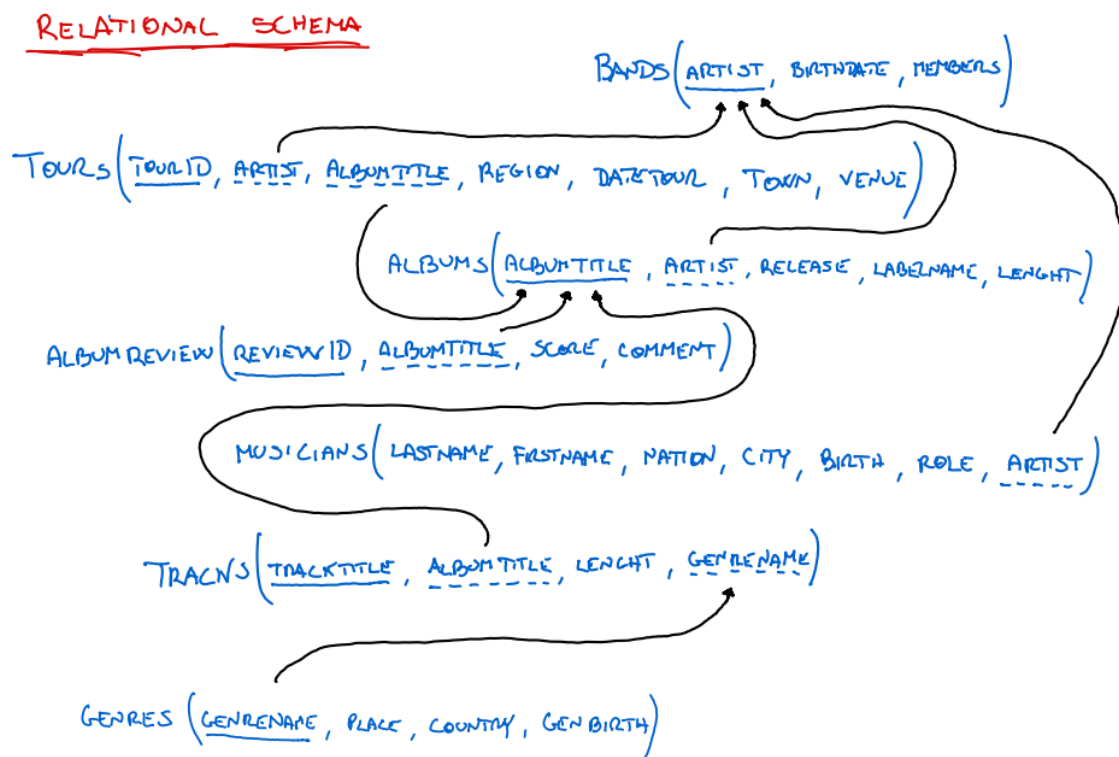 RELATIONAL SCHEMA
BANDS(ARTIST, BIRTHDATE, MEMBERS)
TOURS(TOURID, ARTIST, ALBUMTITLE, REGION, DATETOUR, TOWN, VENUE)
ALBUMS(ALBUMTITLE, ARTIST, RELEASE, LABELNAME, LENGHT)
ALBUMREVIEW(REVIEWID, ALBUMTITLE, SCORE, COMMENT)
MUSICIANS(LASTNAME, FIRSTNAME, NATION, CITY, BIRTH, ROLE, ARTIST)
TRACKS(TRACKTITLE, ALBUMTITLE, LENGHT, GENRENAME)
GENRES (GENRENAME, PLACE, COUNTRY, GENBIRTH)